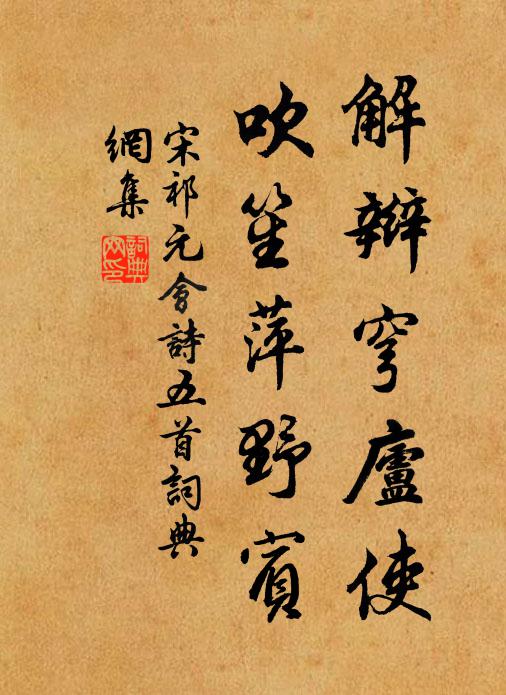 解辮穹廬使
吹笙萍野賓
宋祁元會詩五首詞典
網集
詞典網印